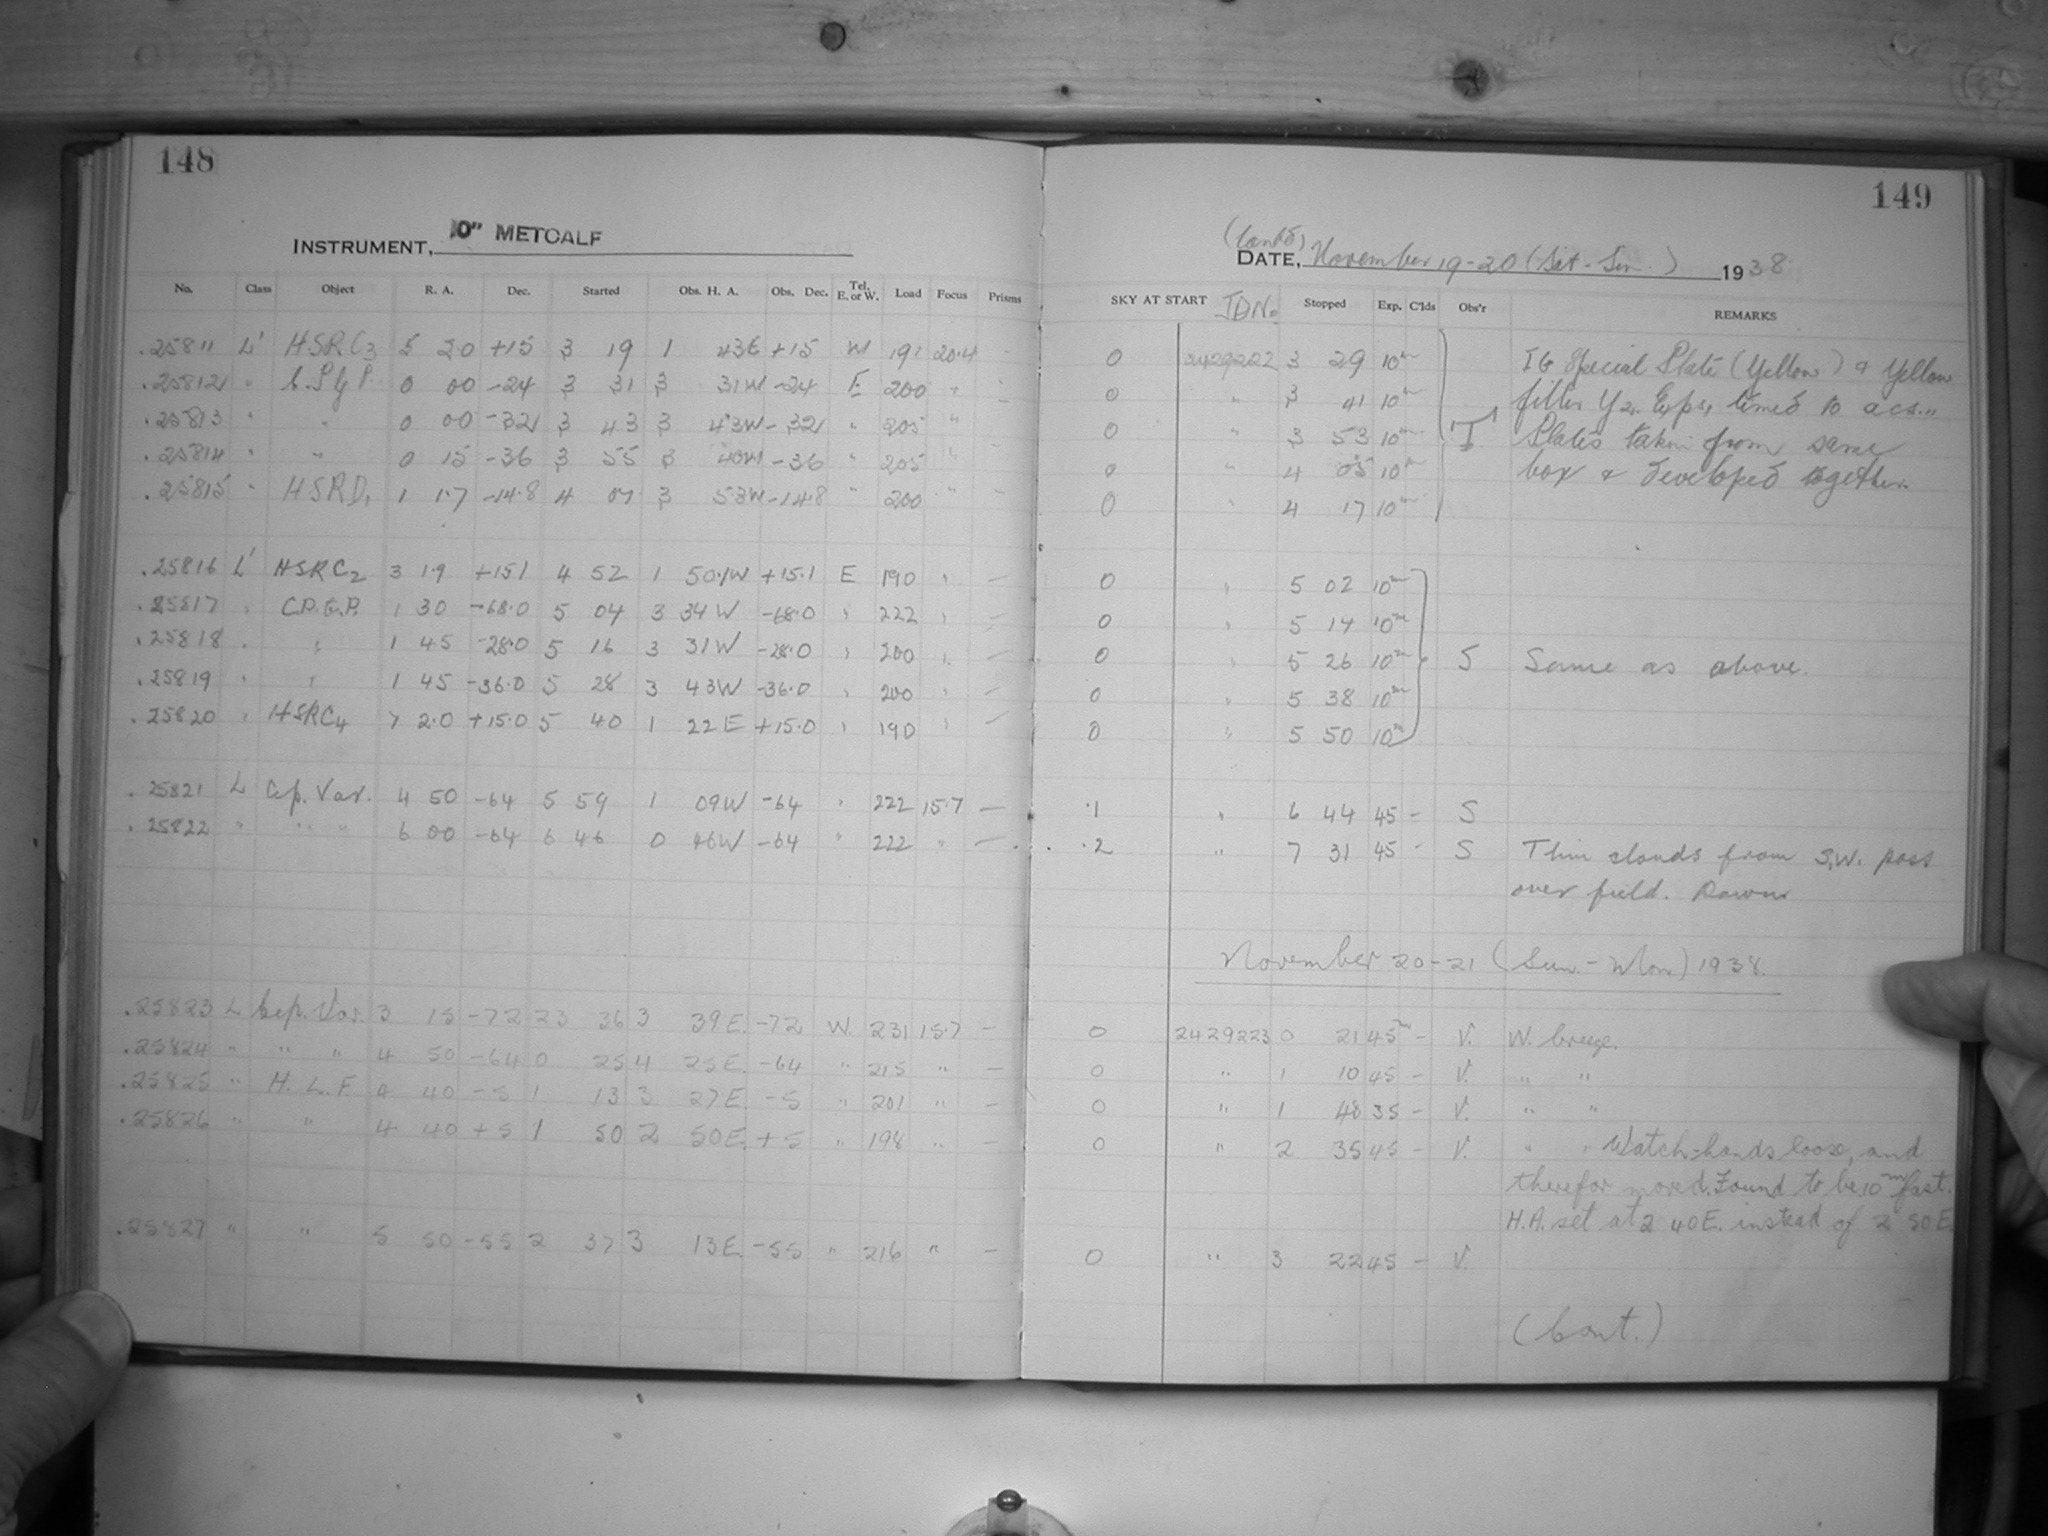 148
INSTRUMENT, 10" METCALF
No. Class Object R. A. Dec. Started Obs. H. A. Obs. Dec. Tel. E. or W. Load Focus Prisms
.25811 L' HSRC3 5 20 +15 3 19 1 43E +15 W 191 20.4 -
.25812 " C.P.G.P. 0 00 -24 3 31 3 31W -24 E 200 " -
.25813 " " 0 00 -32 3 43 3 43W -32 " 205 " -
.25814 " " 0 15 -36 3 55 3 40W -36 " 205 " -
.25815 " HSRD1 1 1.7 -14.8 4 07 3 53W -14.8 " 200 " "
.25816 L' HSRC2 3 1.9 +15.1 4 52 1 50.1W +15.1 E 190 " -
.25817 " C.P.G.P. 1 30 -68.0 5 04 3 34W -68.0 " 222 " -
.25818 " " 1 45 -28.0 5 16 3 31W -28.0 " 200 " -
.25819 " " 1 45 -36.0 5 28 3 43W -36.0 " 200 " -
.25820 " HSRC4 7 2.0 +15.0 5 40 1 22E +15.0 " 190 " -
.25821 L Cep. Var. 4 50 -64 5 59 1 09W -64 " 222 15.7 -
.25822 " " " 6 00 -64 6 46 0 46W -64 " 222 " -
.25823 L Cep. Var. 3 15 -72 23 36 3 39E. -72 W. 231 15.7 -
.25824 " " " 4 50 -64 0 25 4 25E. -64 " 215 " -
.25825 " H. L. F. 4 40 -5 1 13 3 27E. -5 " 201 " -
.25826 " " 4 40 +5 1 50 2 50E. +5 " 198 " -
.25827 " " 5 50 -55 2 37 3 13E. -55 " 216 " -
149
(Contd)
DATE, November 19-20 (Sat-Sun.) 1938
SKY AT START JDN. Stopped Exp. C'lds Obs'r REMARKS
0 2429222 3 29 10m IG Special Plate (Yellow) & Yellow
0 " 3 41 10m filter Y2. Exps. timed to acs.,
0 " 3 53 10m "J" Plates taken from same
0 " 4 05 10m box & developed together.
0 " 4 17 10m
0 " 5 02 10m
0 " 5 14 10m
0 " 5 26 10m S Same as above.
0 " 5 38 10m
0 " 5 50 10m
.1 " 6 44 45 - S
.2 " 7 31 45 - S Thin clouds from S.W. pass
over field. Dawn
November 20-21 (Sun.-Mon.) 1938.
0 2429223 0 21 45m - V. W. breeze.
0 " 1 10 45 - V. " "
0 " 1 48 35 - V. " "
0 " 2 35 45 - V. " " Watch-hands loose, and
therefor moved. Found to be 10m fast.
H.A. set at 2 40E. instead of 2 50E.
0 " 3 22 45 - V.
(Cont.)